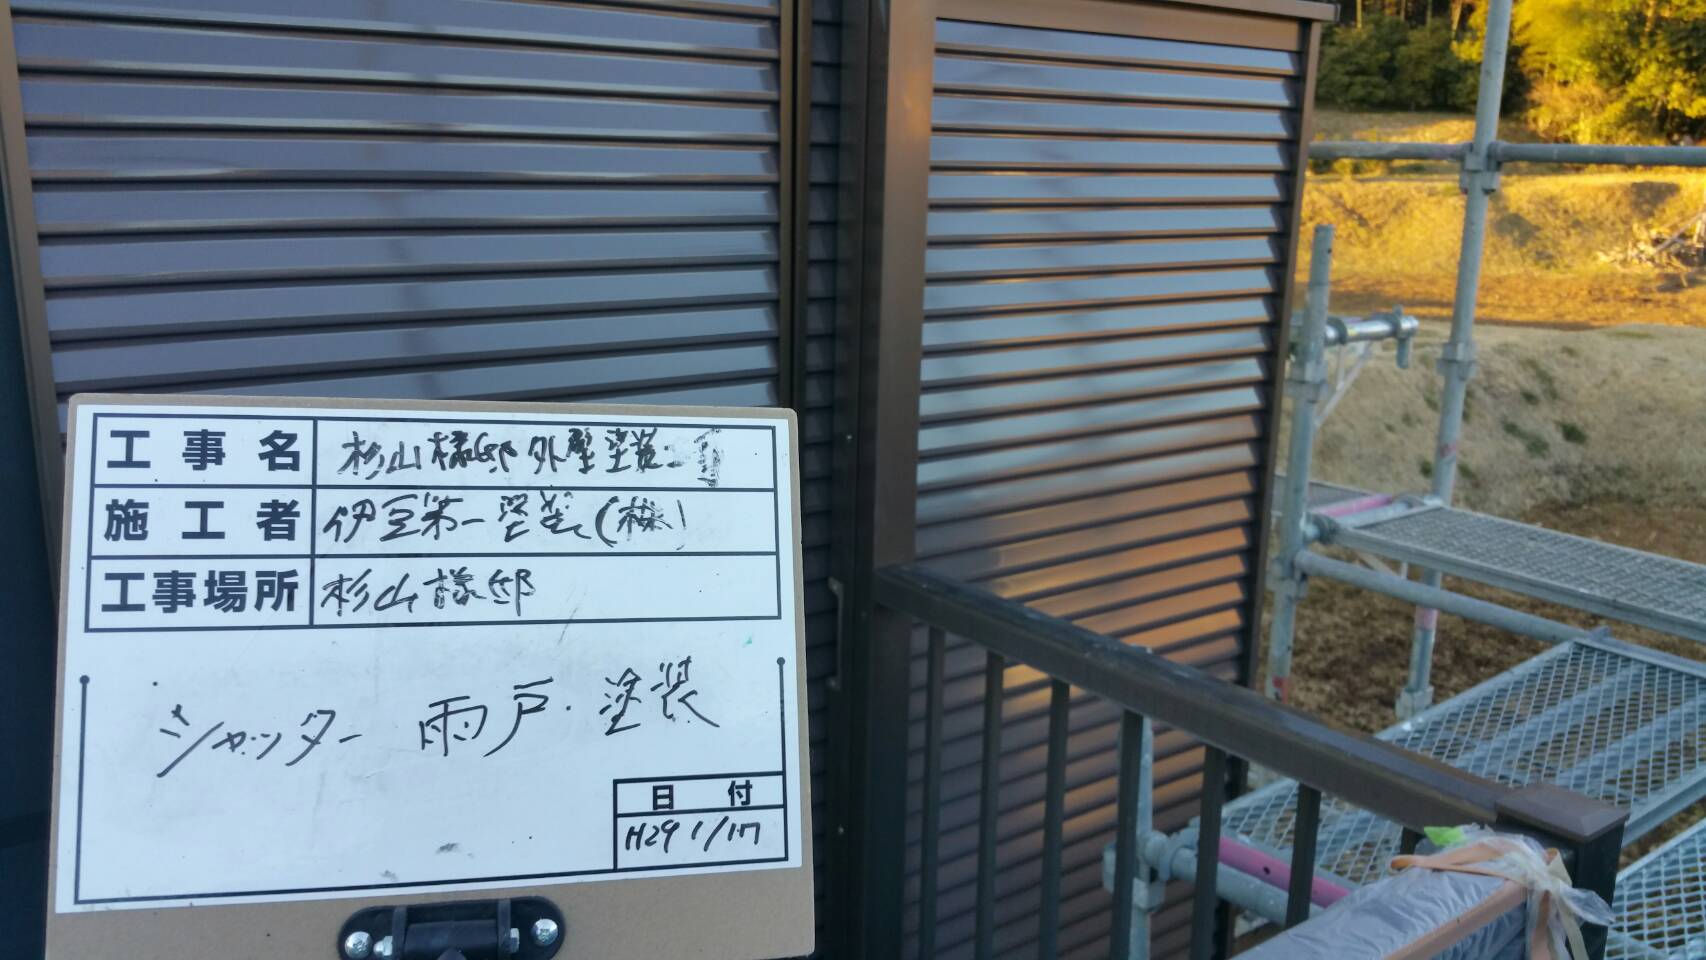 工事名 杉山様邸外壁塗装工事
施工者 伊豆第一塗装(株)
工事場所 杉山様邸
シャッター 雨戸・塗装
日付
H29 1/17